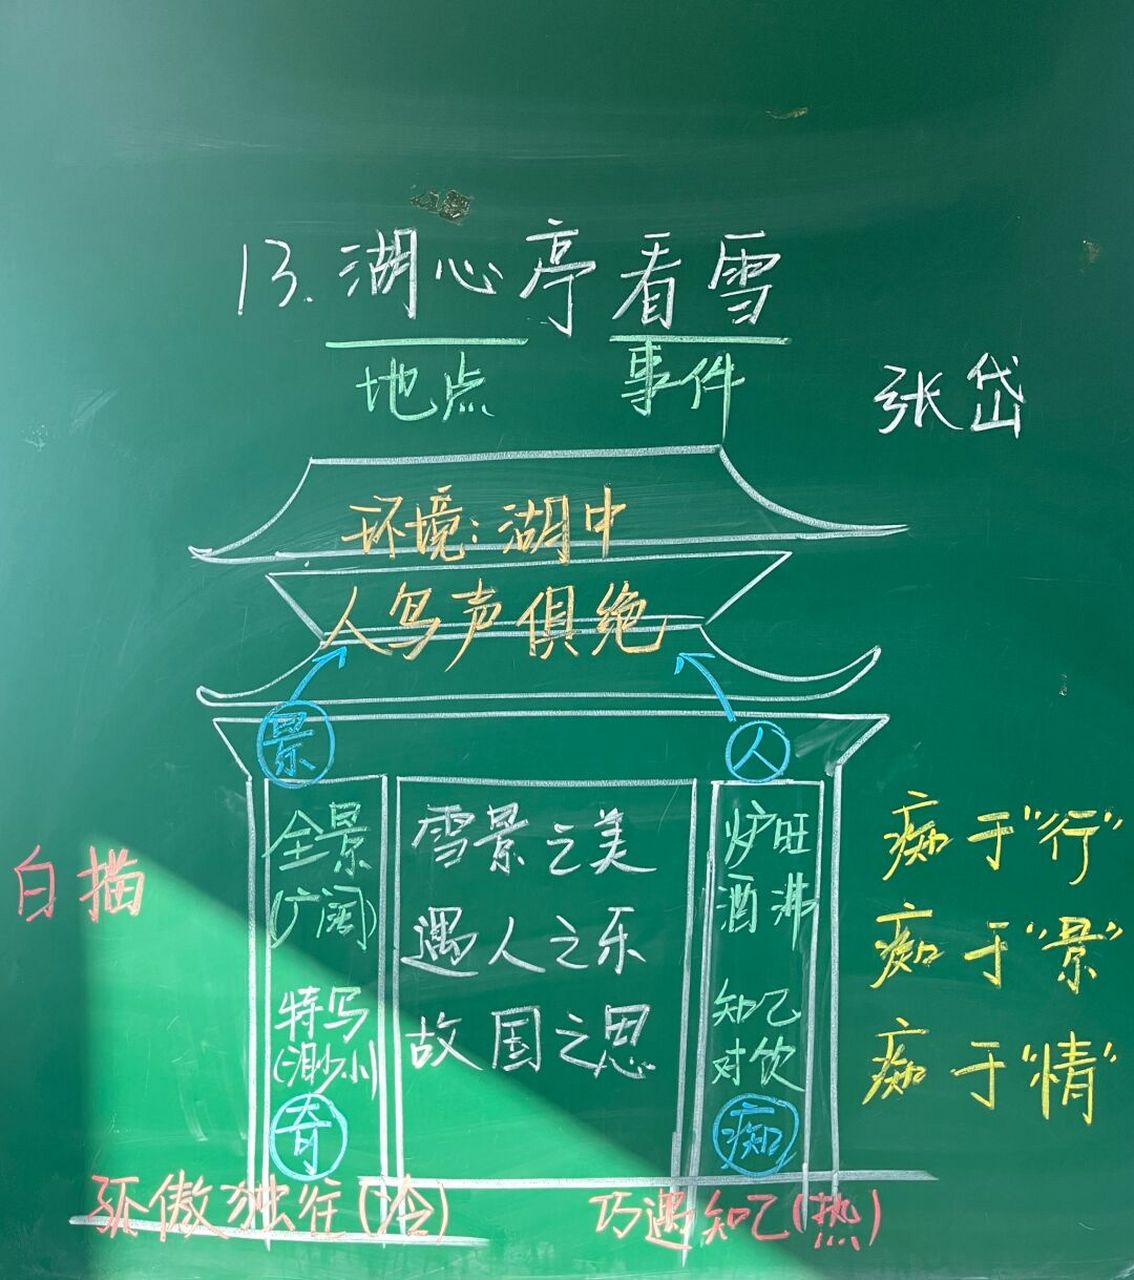 13.湖心亭看雪
地点 事件
张岱
环境:湖中
人鸟声俱绝
景
人
全景
(广阔)
特写
(渺小)
奇
雪景之美
遇人之乐
故国之思
炉旺
酒沸
知己
对饮
痴
白描
痴于“行”
痴于“景”
痴于“情”
孤傲独往(冷)
巧遇知己(热)